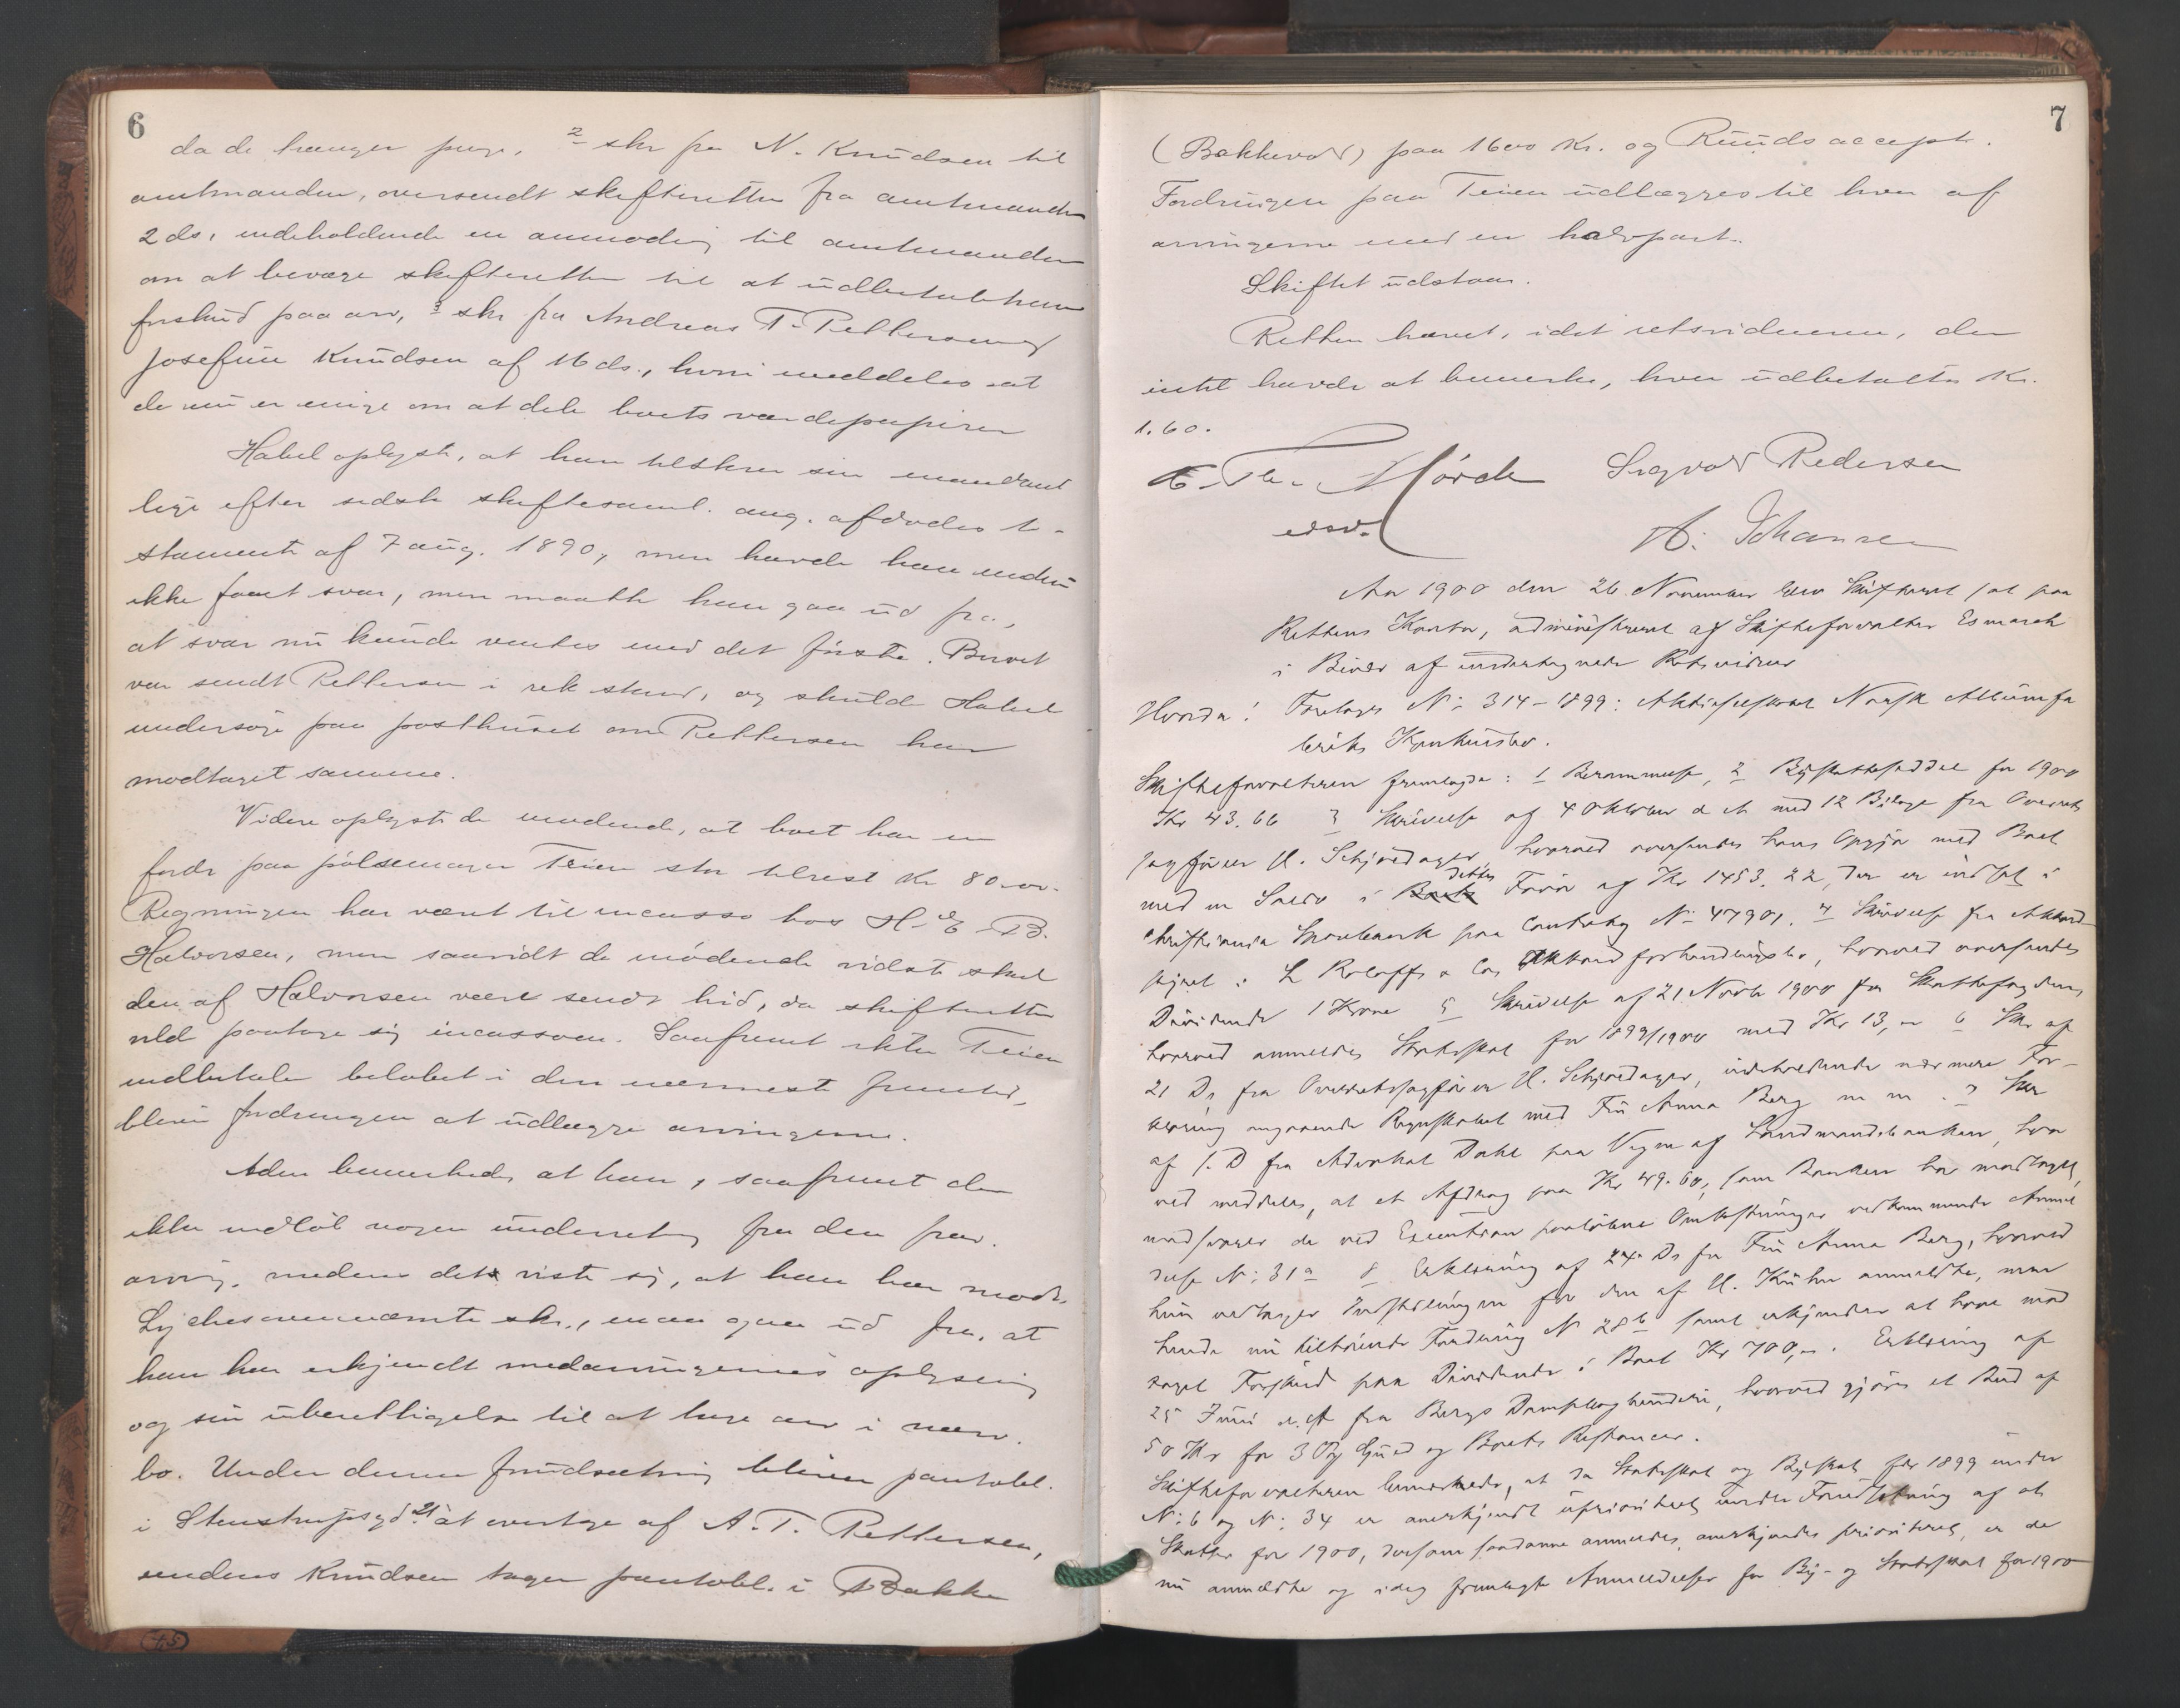 6
da de trænger penge, 2 skr fra N. Knudsen til
amtmanden, oversendt skifteretten fra amtmanden
2 ds, indeholdende en anmodng til amtmanden
om at bevæge skifteretten til at udbetale ham
forskud paa arv, 3 skr fra Andreas T. Pettersen og
Josefine Knudsen af 16 ds., hvori meddeles at
de nu er enige om at dele boets værdipapirer
Habel oplyste, at han tilskrev sin mandant
lige efter sidste skiftesaml. ang. afdødes te-
stamente af 7 aug. 1890, men havde han endnu
ikke faaet svar, men maatte han gaa ud fra,
at svar nu kunde ventes med det første. Brevet
var sendt Pettersen i rek stand, og skulde Habel
undersøge paa posthuset om Pettersen har
modtaget samme.
Videre oplyste de mødende, at boet har en
fordr paa pølsemager Teien stor tilrest Kr 80.00.
Regningen har været til incasso hos H. E. B.
Halvorsen, men saavidt de mødende vidste skal
den af Halvorsen være sendt hid, da skifteretten
vilde paatage sig incassoen. Saafremt ikke Teien
indbetaler beløbet i den nærmeste fremtid,
bliver fordringen at udlægge arvingerne.
Aden bemærkede, at han, saafremt der
ikke indløb nogen underretng fra den frav.
arving, medens det viste sig, at han har modt.
Lyches ovennævnte skr., maa gaa ud fra, at
han har erkjendt medarvingernes oplysning
og sin uberettigelse til at tage arv i nærv.
bo. Under denne forudsætning bliver pantobl.
i Stenstrupsgd 21 at overtage af A. T. Pettersen,
medens Knudsen tager pantobl. i Bakke
7
(Bakkevold) paa 1600 Kr. og Ruuds accept.
Fordringen paa Teien udlægges til hver af
arvingerne med en halvpart.
Skiftet udstaar.
Retten hævet, idet retsvidnerne, der
intet havde at bemerke, hver udbetaltes Kr.
1.60.
Mørch Sigvald Pedersen
edsv. A. Johansen
Aar 1900 den 26. November blev Skifteret sat paa
Rettens Kontor, administreret af Skifteforvalter Esmarch
i Bivær af undertegnede Retsvidner
Hvorda: Foretoges No 314-1899: Aktieselskabet Norsk Albumfa
briks Konkursbo.
Skifteforvalteren fremlagde: 1 Berammelse, 2 Byskatteseddel for 1900
Kr 43.66 3 Skrivelse af 4 Oktober d A med 12 Bilage fra Overrets
sagfører H. Schjødager, hvorved oversendes hans Opgjør med Boet
med en Saldo i dettes Favør af Kr 1453.22, der er indsat i
Christiania Sparebank paa Contrabog No 47901. 4 Skrivelse fra
L Roloffs & Co Akkordforhandlingsbo, hvorved oversendes
Dividende 1 Krone 5 Skrivelse af 21 Novb 1900 fra Skattefogden,
hvorved anmeldes Statsskat for 1899/1900 med Kr 13,- 6 Skr af
21 Ds fra Overretssagfører H. Schjødager, indeholdende nærmere For-
klaring angaaende Regnskabet med Fru Anna Berg m m. 7 Skr
af s. D fra Advokat Dahl paa Vegne af Landmandsbanken, hvor
ved meddeles, at et Afdrag paa Kr 49.60, som Banken har modtaget,
modsvarer de ved Executionen paaløbne Omkostninger vedkommende Anmel
delse No 31a 8 Erklæring af 24. Ds fra Fru Anna Berg, hvorved
hun vedtager Indstillingen for den af H. Kühn anmeldte, men
hende nu tilhørende Fordring No 28b samt erkjender at have mod
taget Forskud paa Dividende i Boet Kr 700,-. Erklæring af
25 Juni d. A fra Bergs Dampbogbinderi, hvorved gjøres et Bud af
50 Kr for 3 og Boets Restancer.
Skifteforvalteren bemærkede, at da Statsskat og Byskat for 1899 under
No 6 og No 34 er anerkjendt uprioriteret under Forudsætning af at
Skatter for 1900, dersom saadanne anmeldes, anerkjendes prioriteret, er de
nu anmeldte og idag fremlagte Anmeldelser for By- og Statsskat for 1900